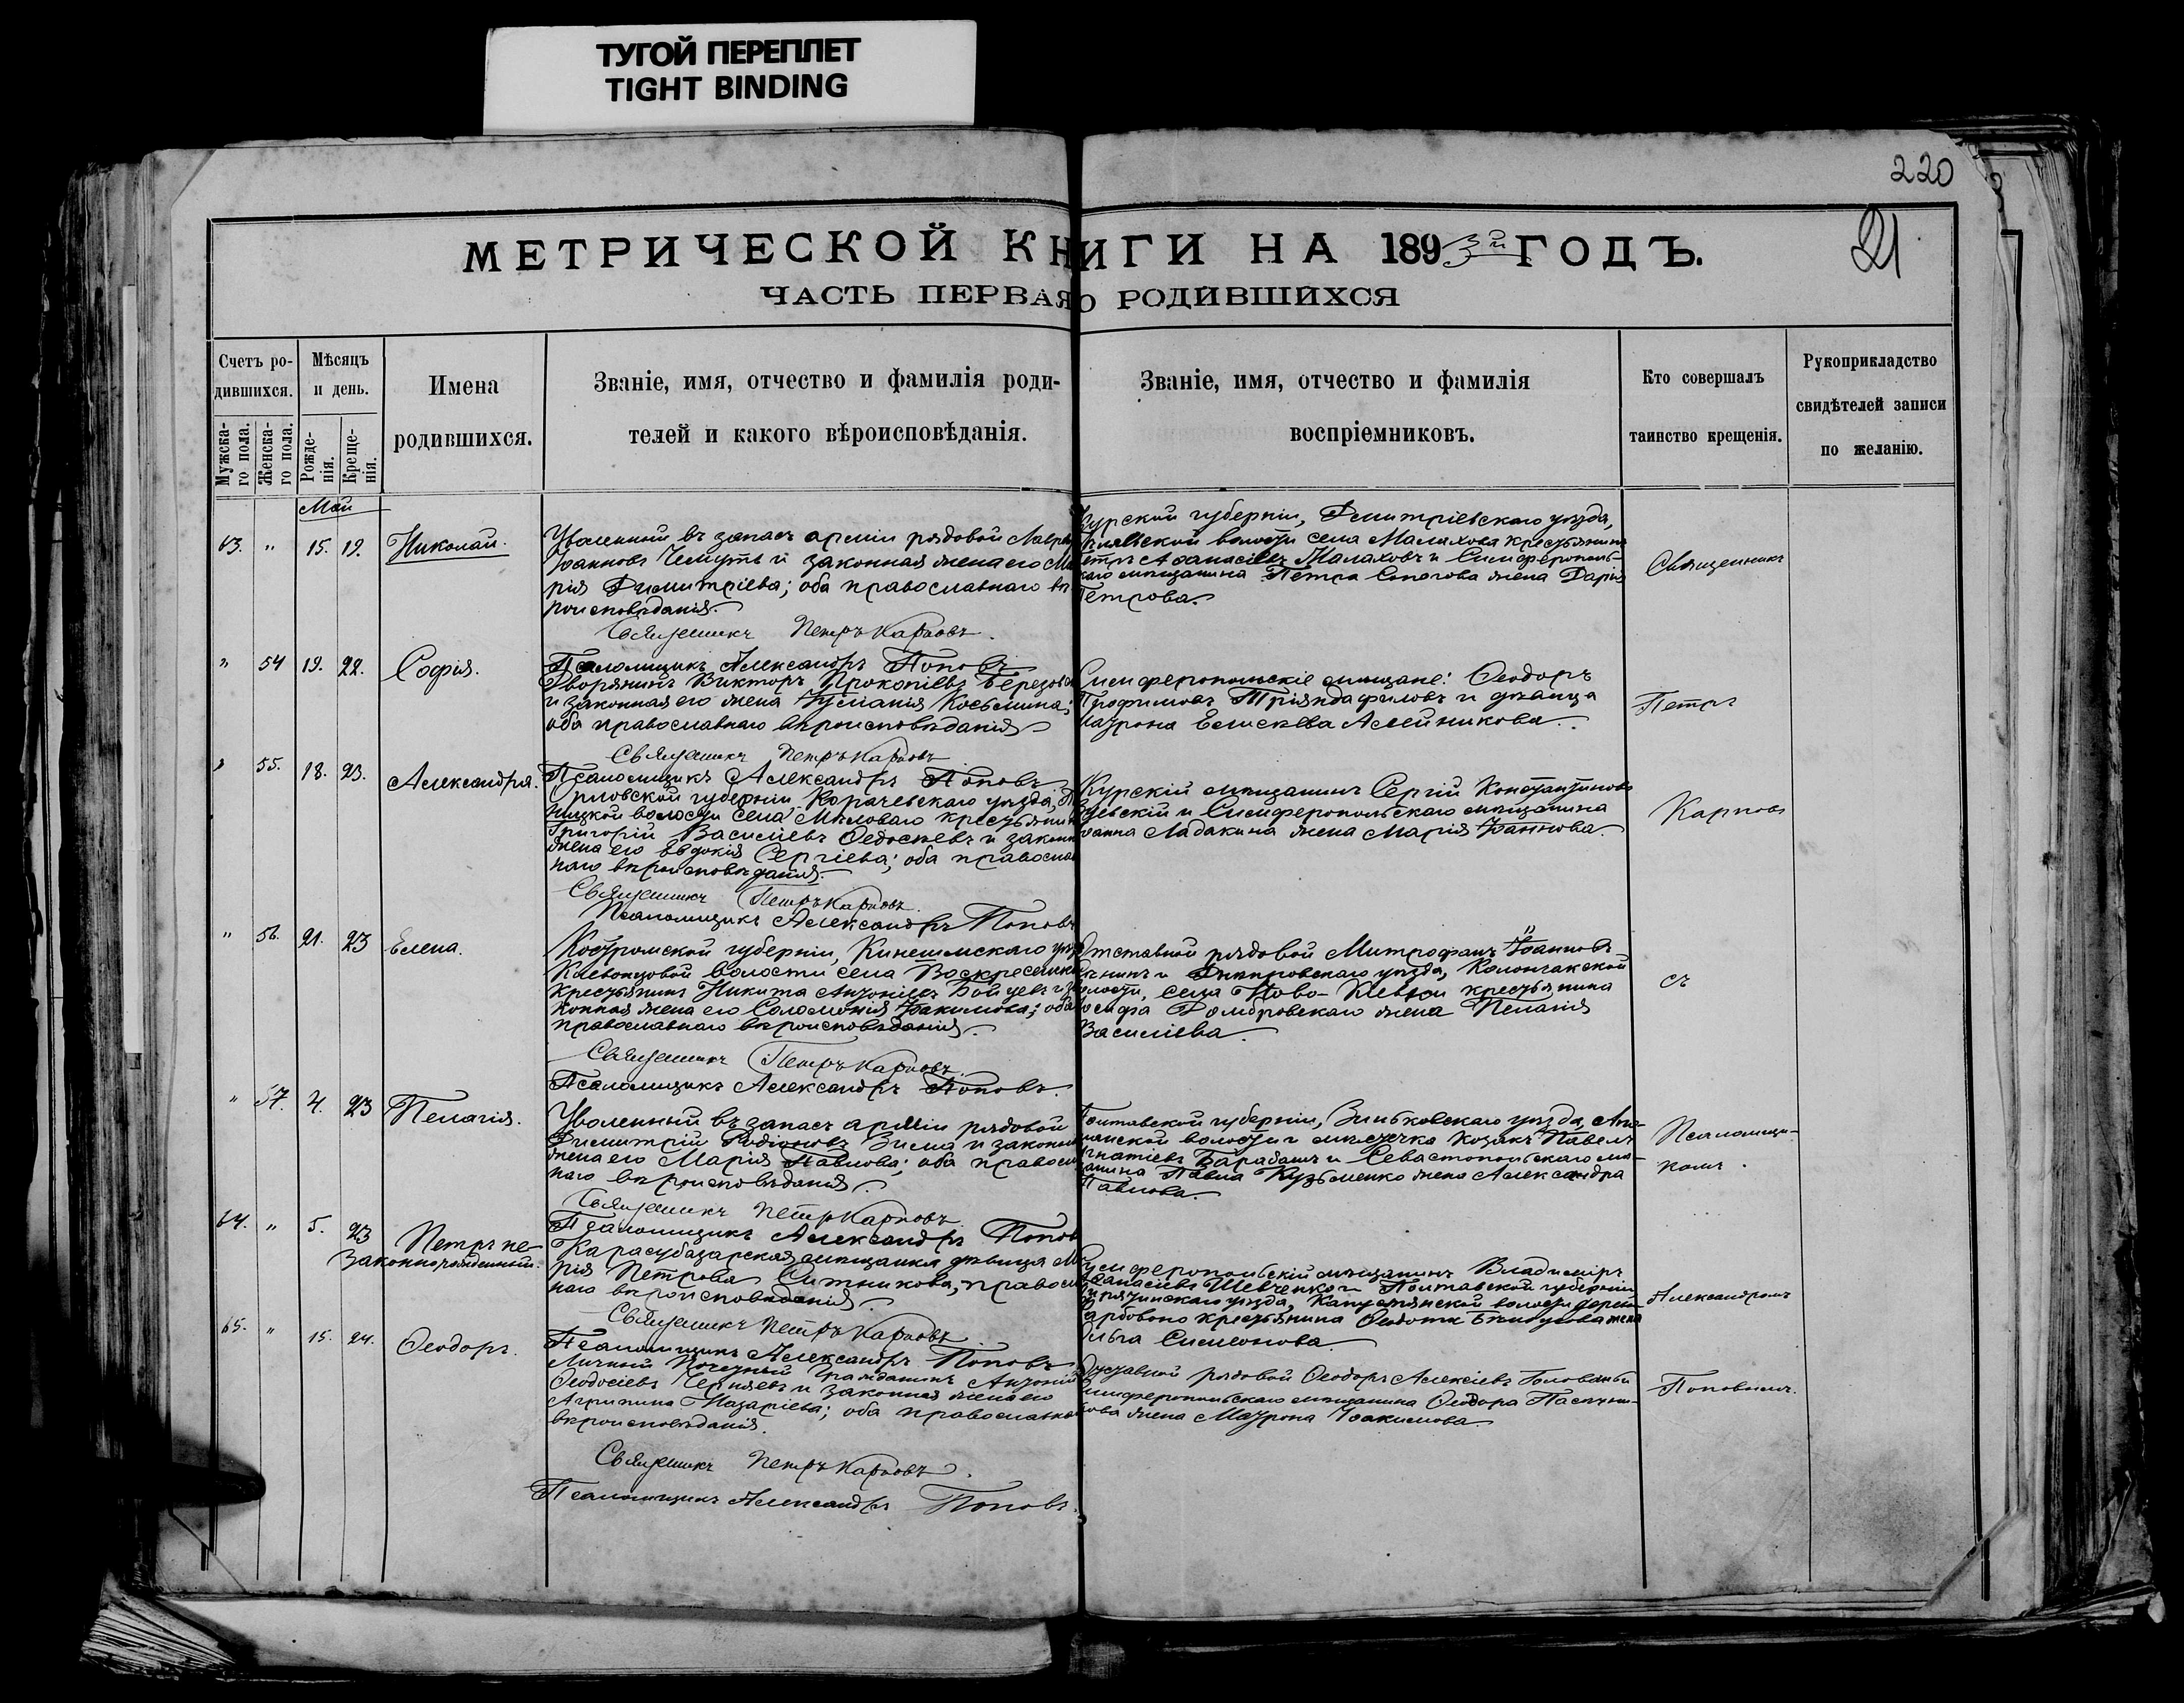 ТУГОЙ ПЕРЕПЛЕТ
TIGHT BINDING
220
21
МЕТРИЧЕСКОЙ КНИГИ НА 1893й ГОДЪ.
ЧАСТЬ ПЕРВАЯ О РОДИВШИХСЯ
Счетъ ро-
дившихся.
Мужска-
го пола.
Женска-
го пола.
Мѣсяцъ
и день.
Рожде-
нія.
Креще-
нія.
Имена
родившихся.
Званіе, имя, отчество и фамилія роди-
телей и какого вѣроисповѣданія.
Званіе, имя, отчество и фамилія
воспріемниковъ.
Кто совершалъ
таинство крещенія.
Рукоприкладство
свидѣтелей записи
по желанію.
Май
63. " 15. 19. Николай.
Уволенный въ запасъ арміи рядовой
Іоанновъ и законная жена его Ма
рія Димитріева; оба православнаго вѣ
роисповѣданія.
Священникъ Петръ Карповъ.
Псаломщикъ Александръ Поповъ
Курской губерніи, Дмитріевскаго уѣзда,
волости села Малахова крестьянинъ
Петръ Аѳанасіевъ Малаховъ и Симферополь-
скаго мѣщанина Петра жена Дарія
Петрова.
Священникъ
" 54 19. 22. Софія.
Дворянинъ Викторъ Прокопіевъ
и законная его жена Козьмина;
оба православнаго вѣроисповѣданія
Священникъ Петръ Карповъ
Псаломщикъ Александръ Поповъ
Симферопольскіе мѣщане: Ѳеодоръ
Трофимовъ Тріандафиловъ и дѣвица
Матрона Елисѣева Алейникова.
Петръ
" 55. 18. 23. Александра.
Орловской губерніи, Карачевскаго уѣзда,
волости села Милового крестьянинъ
Григорій Василіевъ Ѳедосѣевъ и законн
жена его Евдокія Сергіева; оба правосла
наго вѣроисповѣданія.
Священникъ Петръ Карповъ.
Псаломщикъ Александръ Поповъ
Курскій мѣщанинъ Сергій Константиновъ
и Симферопольскаго мѣщанина
Іоанна Ладакина жена Марія Іоаннова.
Карповъ
" 56. 21. 23 Елена.
Костромской губерніи, Кинешемскаго уѣз
волости села Воскресенска
крестьянинъ Никита Антоніевъ и за
конная жена его Соломонія Іоакимова; оба
православнаго вѣроисповѣданія.
Священникъ Петръ Карповъ.
Псаломщикъ Александръ Поповъ.
Отставной рядовой Митрофанъ Іоанновъ
и Днѣпровскаго уѣзда, Колончакской
волости, села Ново-Кіевки крестьянина
Іосифа Домбровскаго жена Пелагія
Василіева.
съ
" 57. 4. 23 Пелагія.
Уволенный въ запасъ арміи рядовой
Димитрій Родіоновъ Зима и законная
жена его Марія Павлова; оба правосла
наго вѣроисповѣданія.
Священникъ Петръ Карповъ.
Псаломщикъ Александръ Поповъ
Полтавской губерніи, Зиньковскаго уѣзда,
волости и мѣстечка козакъ Павелъ
Игнатіевъ Барабашъ и Севастопольскаго мѣ-
щанина Павла Кузьменко жена Александра
Павлова.
Псаломщи-
комъ.
64. " 5. 23 Петръ не-
законнорожденный.
Карасубазарская мѣщанка дѣвица Ма
рія Петрова Ситникова, правосла
наго вѣроисповѣданія.
Священникъ Петръ Карповъ
Псаломщикъ Александръ Поповъ
Симферопольскій мѣщанинъ Владиміръ
Аѳанасіевъ Шевченко и Полтавской губерніи
уѣзда, волости
крестьянина жена
Ольга Симеонова.
Александромъ
65. " 15. 24. Ѳеодоръ.
Личный Почетный Гражданинъ Антоній
Ѳеодосіевъ Черняевъ и законная жена его
Агрипина Назаріева; оба православнаго
вѣроисповѣданія.
Священникъ Петръ Карповъ.
Псаломщикъ Александръ Поповъ.
Отставной рядовой Ѳеодоръ Алексіевъ
Симферопольскаго мѣщанина Ѳеодора
жена Матрона Іоакимова.
Поповымъ.